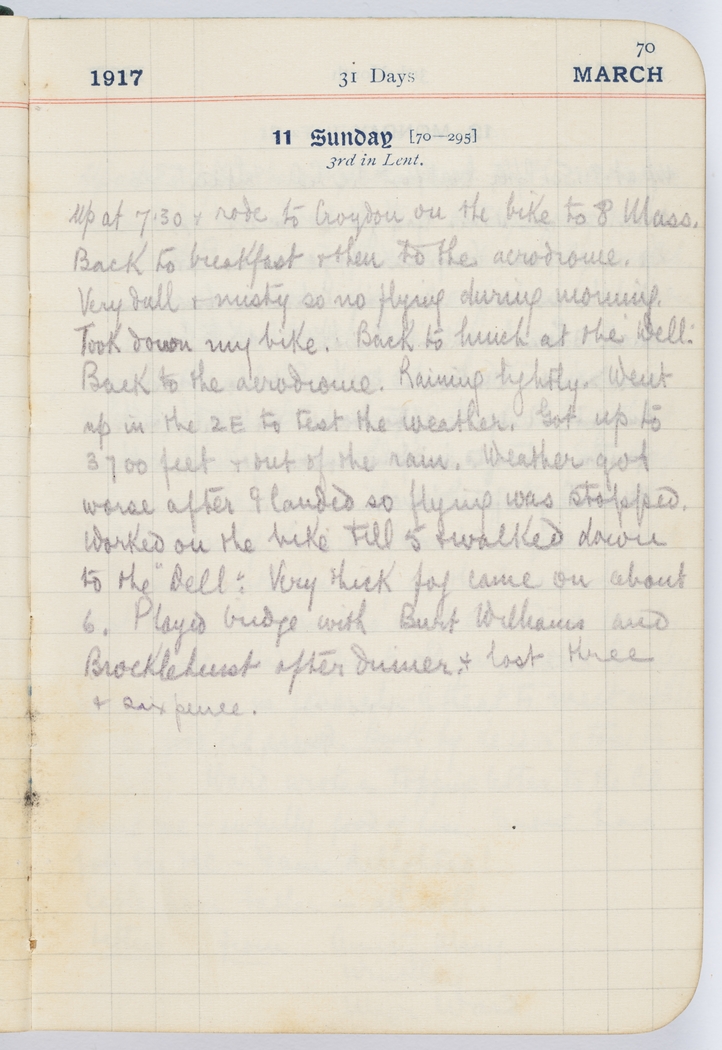 70
1917 31 Days MARCH
11 Sunday [70—295]
3rd in Lent.
Up at 7.30 + rode to Croydon on the bike to 8 Mass.
Back to breakfast + then to the aerodrome.
Very dull + misty so no flying during morning.
Took down my bike. Back to lunch at the Dell.
Back to the aerodrome. Raining lightly. Went
up in the 2E to test the weather. Got up to
3700 feet + out of the rain. Weather got
worse after I landed so flying was stopped.
Worked on the bike till 5 + walked down
to the "Dell". Very thick fog came on about
6. Played bridge with Burt Williams and
Brocklehurst after dinner + lost three
+ sixpence.